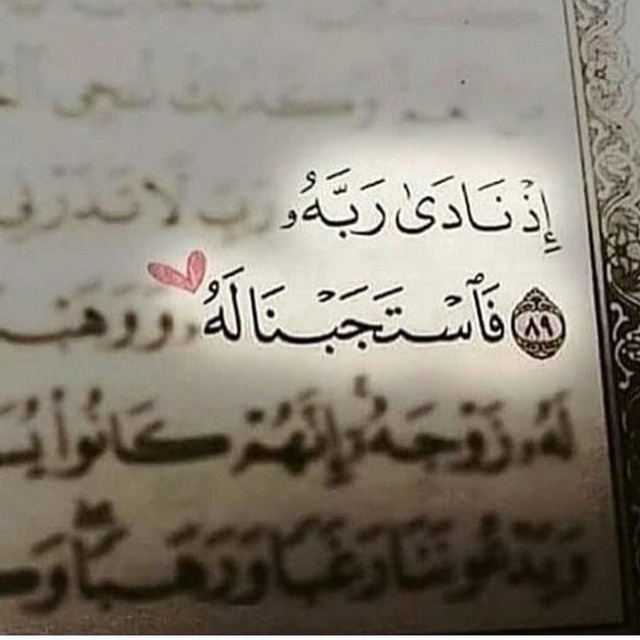 وكذلك نـجى
إِذْ نَادَىٰ رَبَّهُۥ رَبِّ لَا تَذَرْنِى
٨٩ فَٱسْتَجَبْنَا لَهُۥ وَوَهَبْ
لَهُۥ زَوْجَهُۥٓ إِنَّهُمْ كَانُوا۟ يُسَ
وَيَدْعُونَنَا رَغَبًا وَرَهَبًا ۖ وَكَ